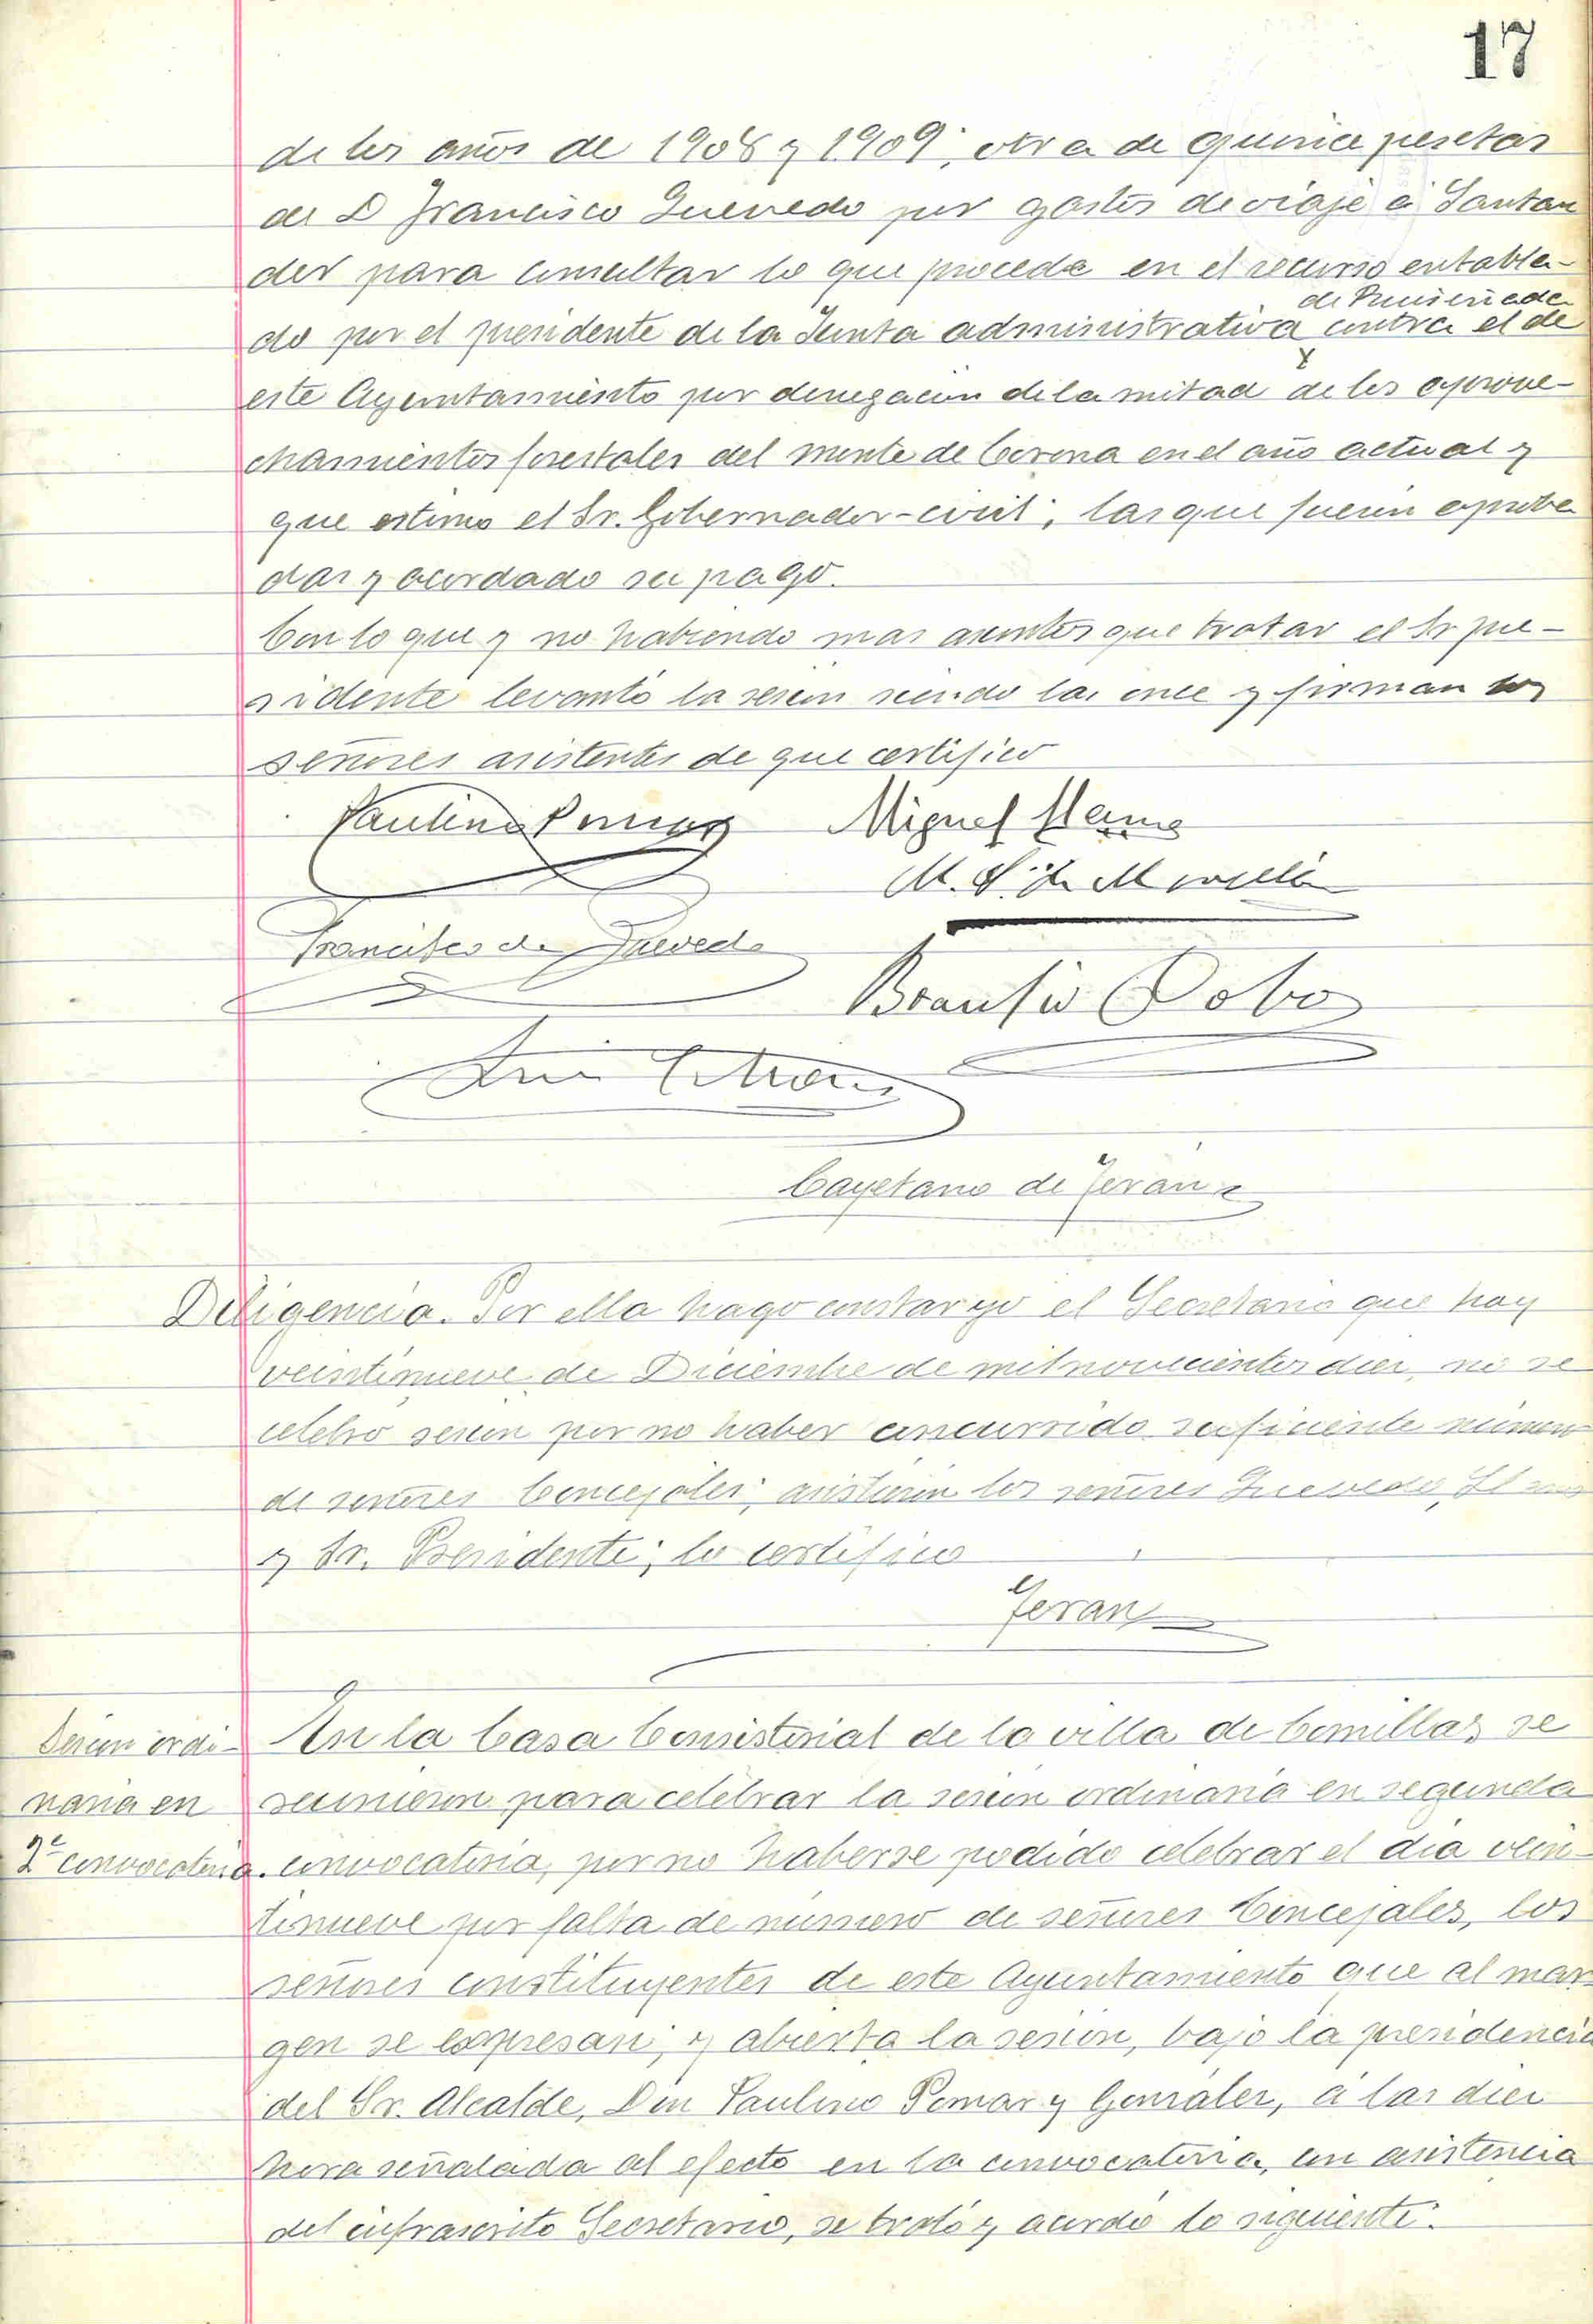 17
de los años de 1908 y 1909; otra de quince pesetas
de D Francisco Quevedo por gastos de viaje á Santan
der para consultar lo que procede en el recurso entabla-
de Ruiseñada
do por el presidente de la Junta administrativa contra el de
este Ayuntamiento por denegacion de la mitad de los aprove-
chamientos forestales del monte de Corona en el año actual y
que estimó el Sr. Gobernador-civil; las que fueron aproba
das y acordado su pago.
Con lo que y no habiendo mas asuntos que tratar el Sr pre-
sidente levantó la sesion siendo las once y firman los
señores asistentes de que certifico
Paulino Pomar Miguel
M. S. de Movellán
Francisco de Quevedo
Braulio Cobo
Cayetano de Terán
Diligencia. Por ella hago constar yo el Secretario que hoy
veintinueve de Diciembre de mil novecientos diez, no se
celebró sesion por no haber concurrido suficiente número
de señores Concejales; asistieron los señores Quevedo,
y Sr. Presidente; lo certifico
Terán
Sesion ordi-
naria en
2ª convocatoria.
En la Casa Consistorial de la villa de Comillas se
reunieron para celebrar la sesion ordinaria en segunda
convocatoria, por no haberse podido celebrar el dia vein-
tinueve por falta de número de señores Concejales, los
señores constituyentes de este Ayuntamiento que al mar
gen se expresan; y abierta la sesion, bajo la presidencia
del Sr. Alcalde, Don Paulino Pomar y González, á las diez
hora señalada al efecto en la convocatoria, con asistencia
del infrascrito Secretario, se trató y acordó lo siguiente: